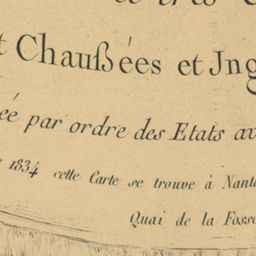 t Chaußées et Jng
ée par ordre des Etats av
1834 cette Carte se trouve à Nant
Quai de la Foss